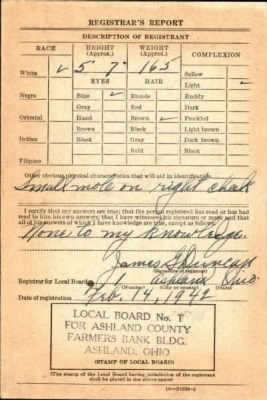 REGISTRAR'S REPORT
DESCRIPTION OF REGISTRANT
RACE HEIGHT (Approx.) WEIGHT (Approx.) COMPLEXION
White ✓ 5 7" 165 Sallow
EYES HAIR Light ✓
Negro Blue ✓ Blonde Ruddy
Gray Red Dark
Oriental Hazel Brown ✓ Freckled
Brown Black Light brown
Indian Black Gray Dark brown
Bald Black
Filipino
Other obvious physical characteristics that will aid in identification
Small mole on right cheek
I certify that my answers are true; that the person registered has read or has had
read to him his own answers; that I have witnessed his signature or mark and that
all of his answers of which I have knowledge are true, except as follows:
None to my knowledge.
James G Duncan
(Signature of registrar)
Registrar for Local Board Ashland Ohio
(Number) (City or county) (State)
Date of registration Feb. 14, 1942
LOCAL BOARD No. 1
FOR ASHLAND COUNTY
FARMERS BANK BLDG.
ASHLAND, OHIO
(STAMP OF LOCAL BOARD)
(The stamp of the Local Board having jurisdiction of the registrant
shall be placed in the above space)